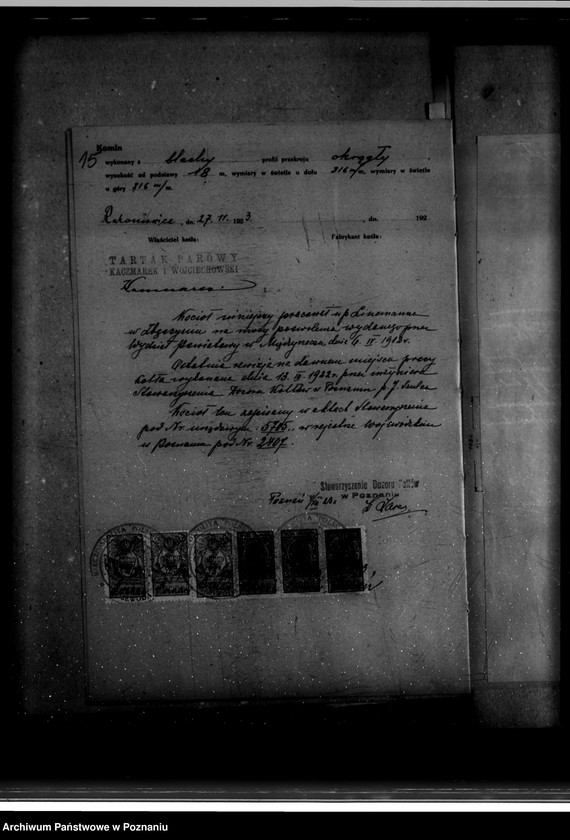 Komin
15 wykonany z blachy profil przekroju okrągły,
wysokość od podstawy 18 m, wymiary w świetle u dołu 316 m/m, wymiary w świetle
u góry 316 m/m.
Rakoniewice, dn. 27. 11. 1923. , dn. 192
Właściciel kotła: Fabrykant kotła:
TARTAK PAROWY
KACZMAREK I WOJCIECHOWSKI
Kocioł niniejszy pracował u p. Linemanna
w Zbąszyniu na mocy pozwolenia wydanego przez
Wydział Powiatowy w Międzyrzeczu dnia 4. II 1912 r.
Ostatnia rewizja na dawnem miejscu pracy
kotła wykonana dnia 13. IX 1922 r. przez inżyniera
Stowarzyszenia Dozoru Kotłów w Poznaniu p. J.
Kocioł ten zapisany w aktach Stowarzyszenia
pod Nr. urzędowym 5705. w rejestrze Województwa
w Poznaniu pod Nr. 2407.
Stowarzyszenie Dozoru Kotłów
w Poznaniu
Poznań
Archiwum Państwowe w Poznaniu